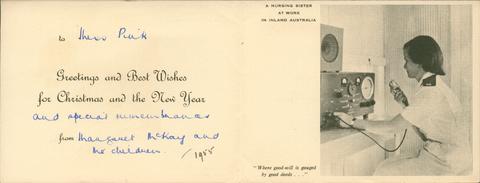 to Miss Pink
Greetings and Best Wishes
for Christmas and the New Year
and special remembrances
from Margaret McKay and
the children. /1955
A NURSING SISTER
AT WORK
IN INLAND AUSTRALIA
"Where good-will is gauged
by good deeds . . ."